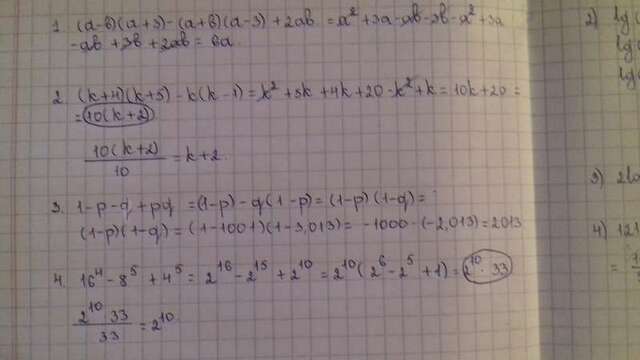 1. (a-b)(a+3)-(a+b)(a-3)+2ab = a² + 3a - ab - 3b - a² + 3a
- ab + 3b + 2ab = 6a
2. (k+4)(k+5) - k(k-1) = k² + 5k + 4k + 20 - k² + k = 10k + 20 =
= 10(k+2)
10(k+2)/10 = k+2
3. 1-p-q+pq = (1-p) - q(1-p) = (1-p)(1-q) =
(1-p)(1-q) = (1-1001)(1-3,013) = -1000 · (-2,013) = 2013
4. 16⁴ - 8⁵ + 4⁵ = 2¹⁶ - 2¹⁵ + 2¹⁰ = 2¹⁰(2⁶ - 2⁵ + 1) = 2¹⁰ · 33
2¹⁰ 33/33 = 2¹⁰
2) lg
lg
lg
3) 2lo
4) 121
=